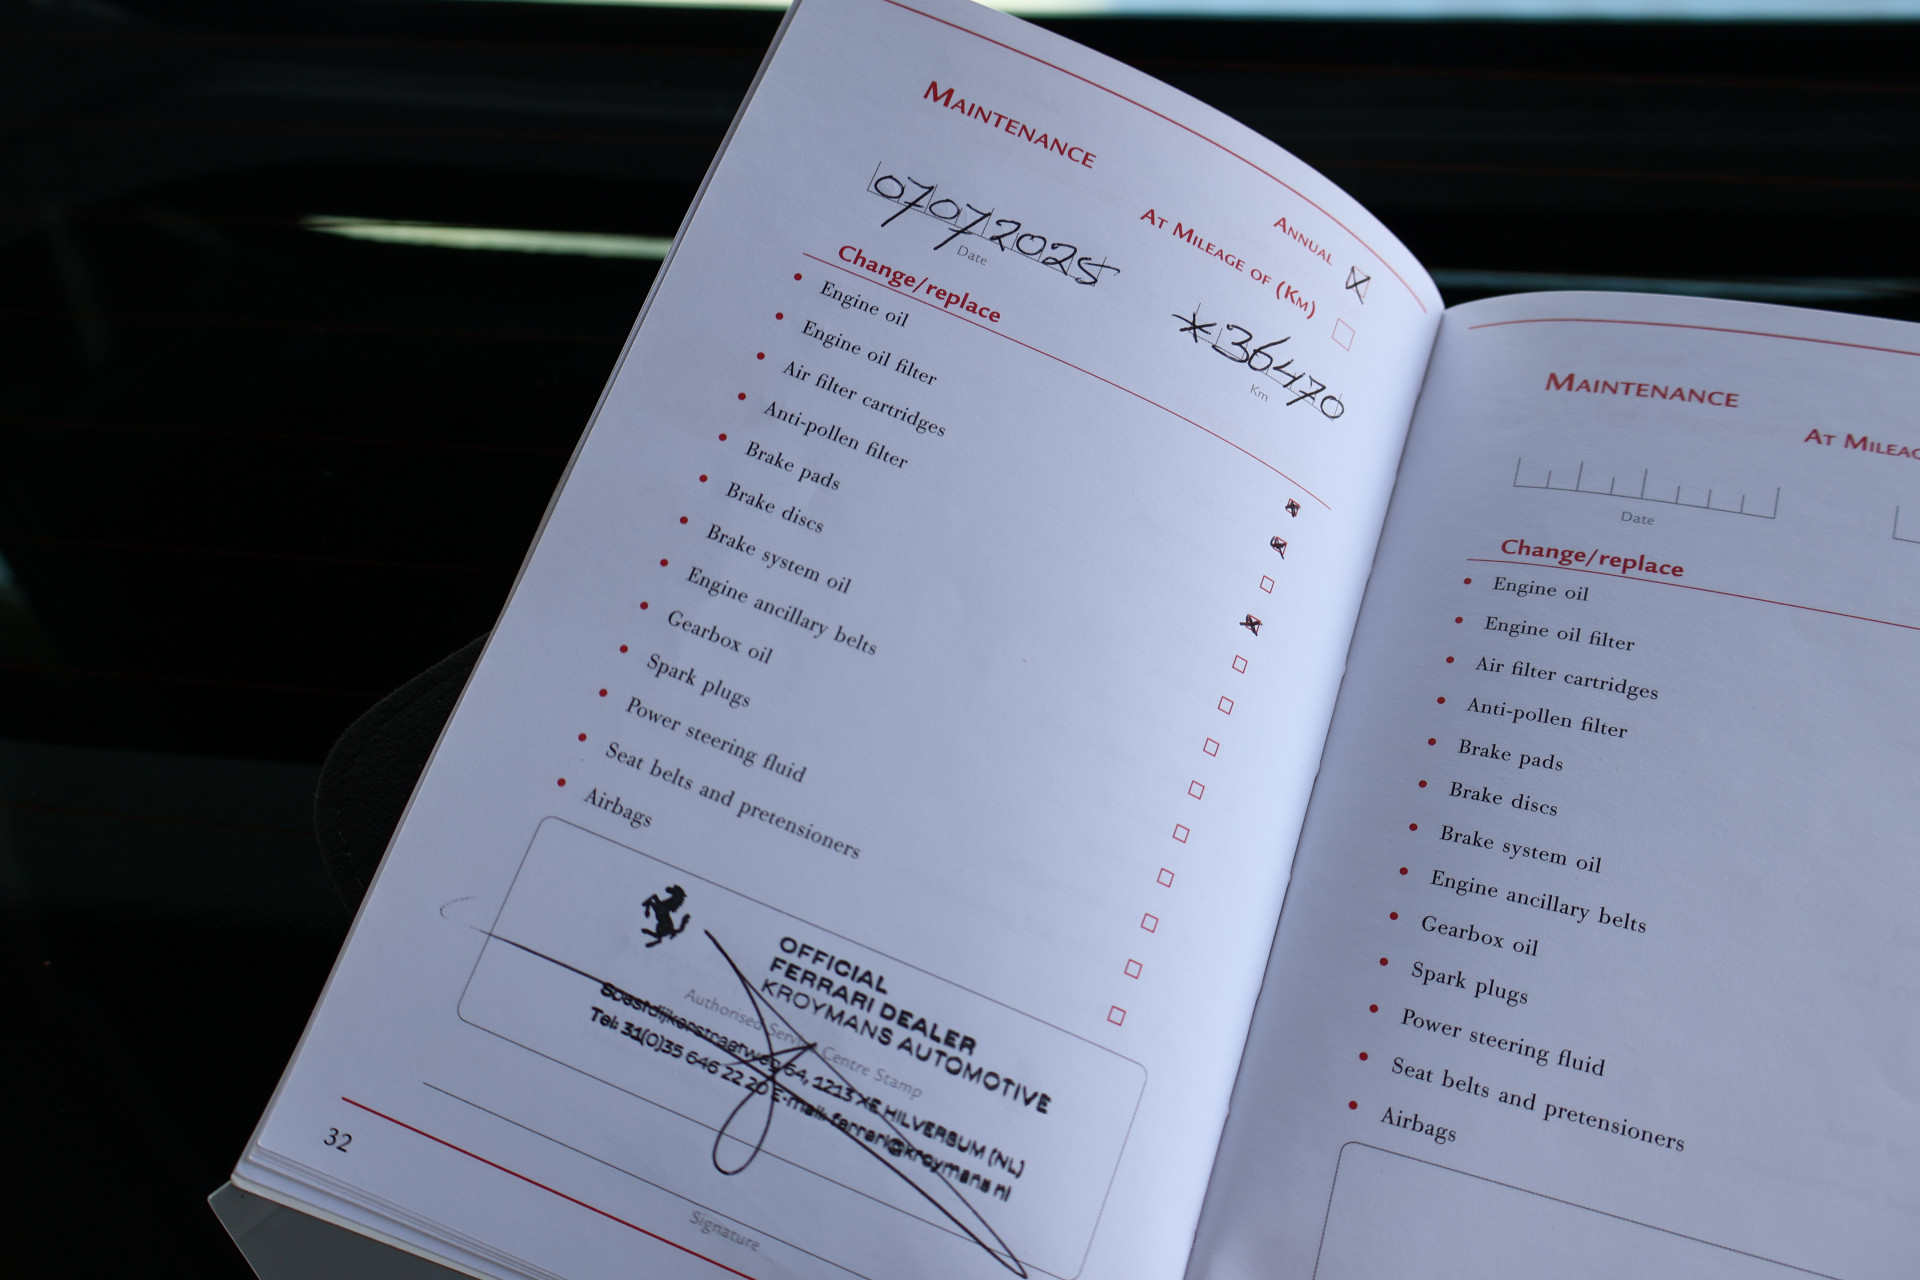 MAINTENANCE
ANNUAL
AT MILEAGE OF (KM)
07072025
Date
*36470
Km
Change/replace
• Engine oil
• Engine oil filter
• Air filter cartridges
• Anti-pollen filter
• Brake pads
• Brake discs
• Brake system oil
• Engine ancillary belts
• Gearbox oil
• Spark plugs
• Power steering fluid
• Seat belts and pretensioners
• Airbags
OFFICIAL
FERRARI DEALER
KROYMANS AUTOMOTIVE
Authorised Service Centre Stamp
Soestdijkerstraatweg 64, 1213 XE HILVERSUM (NL)
Tel: 31(0)35 646 22 20 E-mail: ferrari@kroymans.nl
Signature
32
MAINTENANCE
AT MILEAG
Date
Change/replace
• Engine oil
• Engine oil filter
• Air filter cartridges
• Anti-pollen filter
• Brake pads
• Brake discs
• Brake system oil
• Engine ancillary belts
• Gearbox oil
• Spark plugs
• Power steering fluid
• Seat belts and pretensioners
• Airbags